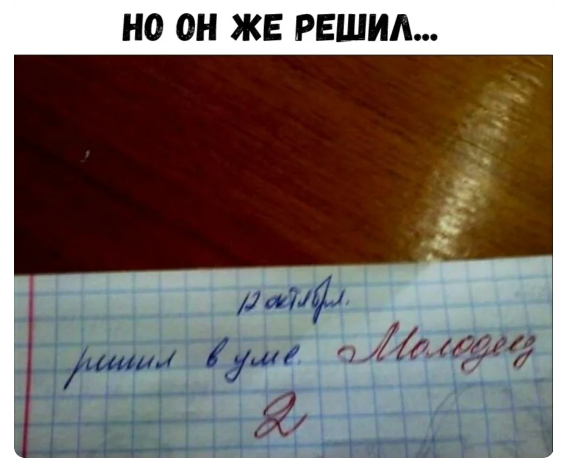 НО ОН ЖЕ РЕШИЛ...
12 октября.
решил в уме. Молодец
2